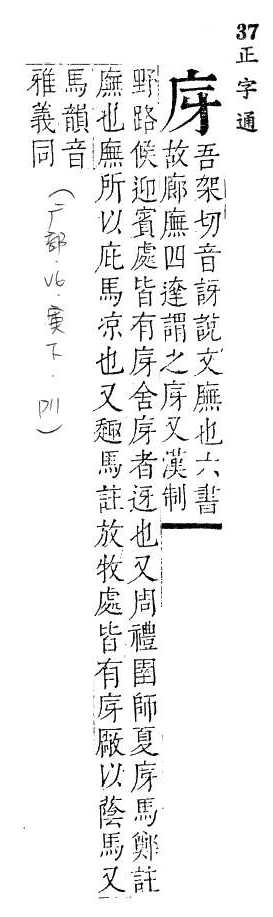 37
正字通
庌
吾架切音訝說文廡也六書
故廊廡四達謂之庌又漢制
野路候迎賓處皆有庌舍庌者迓也又周禮圉師夏庌馬鄭註
廡也廡所以庇馬凉也又趣馬註放牧處皆有庌廠以蔭馬又
馬韻音
雅義同
(广部.V6.寅下.P11)